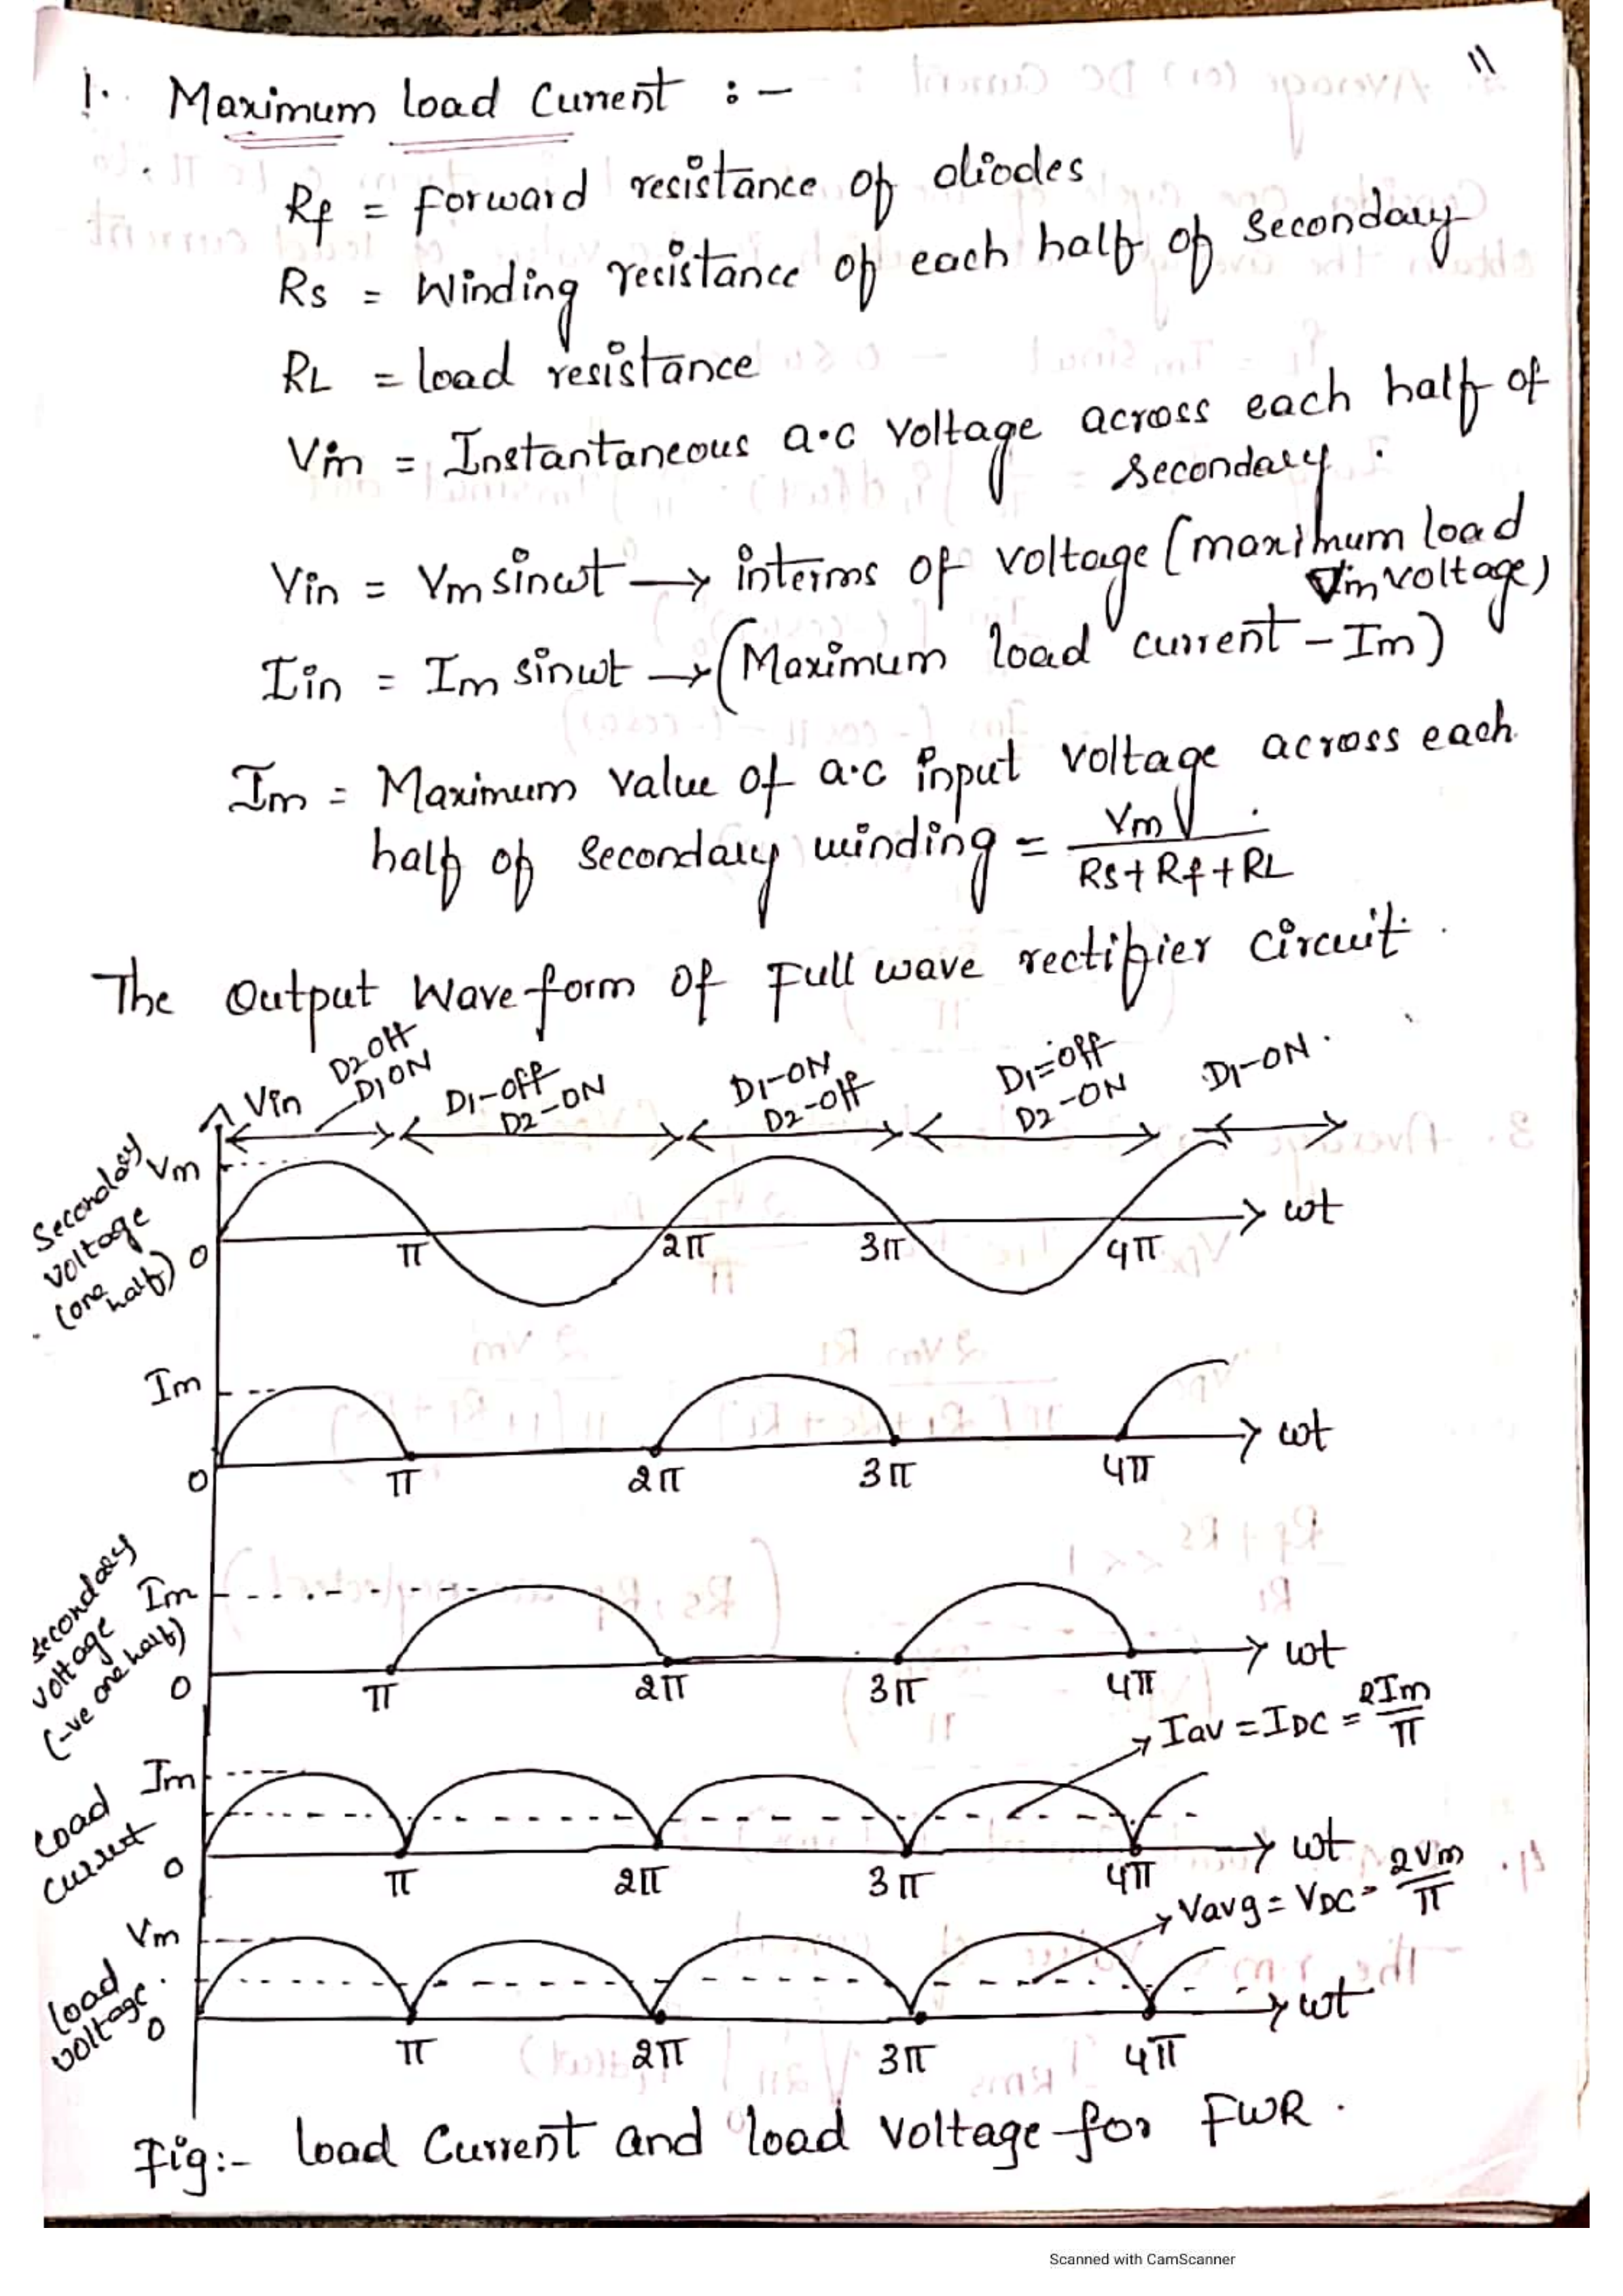 11
1. Maximum load Current :-
Rf = forward resistance of diodes
Rs = Winding resistance of each half of Secondary
RL = load resistance
Vin = Instantaneous a.c voltage across each half of
secondary.
Vin = Vm sinωt → interms of voltage (maximum load
Vm voltage)
Iin = Im sinωt → (Maximum load current - Im)
Im = Maximum value of a.c input voltage across each
half of Secondary winding = Vm / Rs + Rf + RL
The Output Wave form of Full wave rectifier circuit.
Vin
D2 Off
D1 ON
D1-off
D2-ON
D1-ON
D2-off
D1=off
D2-ON
D1-ON.
Secondary
voltage
(one
half)
Vm
0
π 2π 3π 4π ωt
Im
0
π 2π 3π 4π ωt
secondary
voltage
(-ve one half)
Im
0
π 2π 3π 4π ωt
Iav = IDC = 2Im/π
Load
current
Im
0
π 2π 3π 4π ωt
Vavg = VDC = 2Vm/π
load
voltage.
Vm
0
π 2π 3π 4π ωt
Fig:- load Current and load voltage for FWR.
Scanned with CamScanner